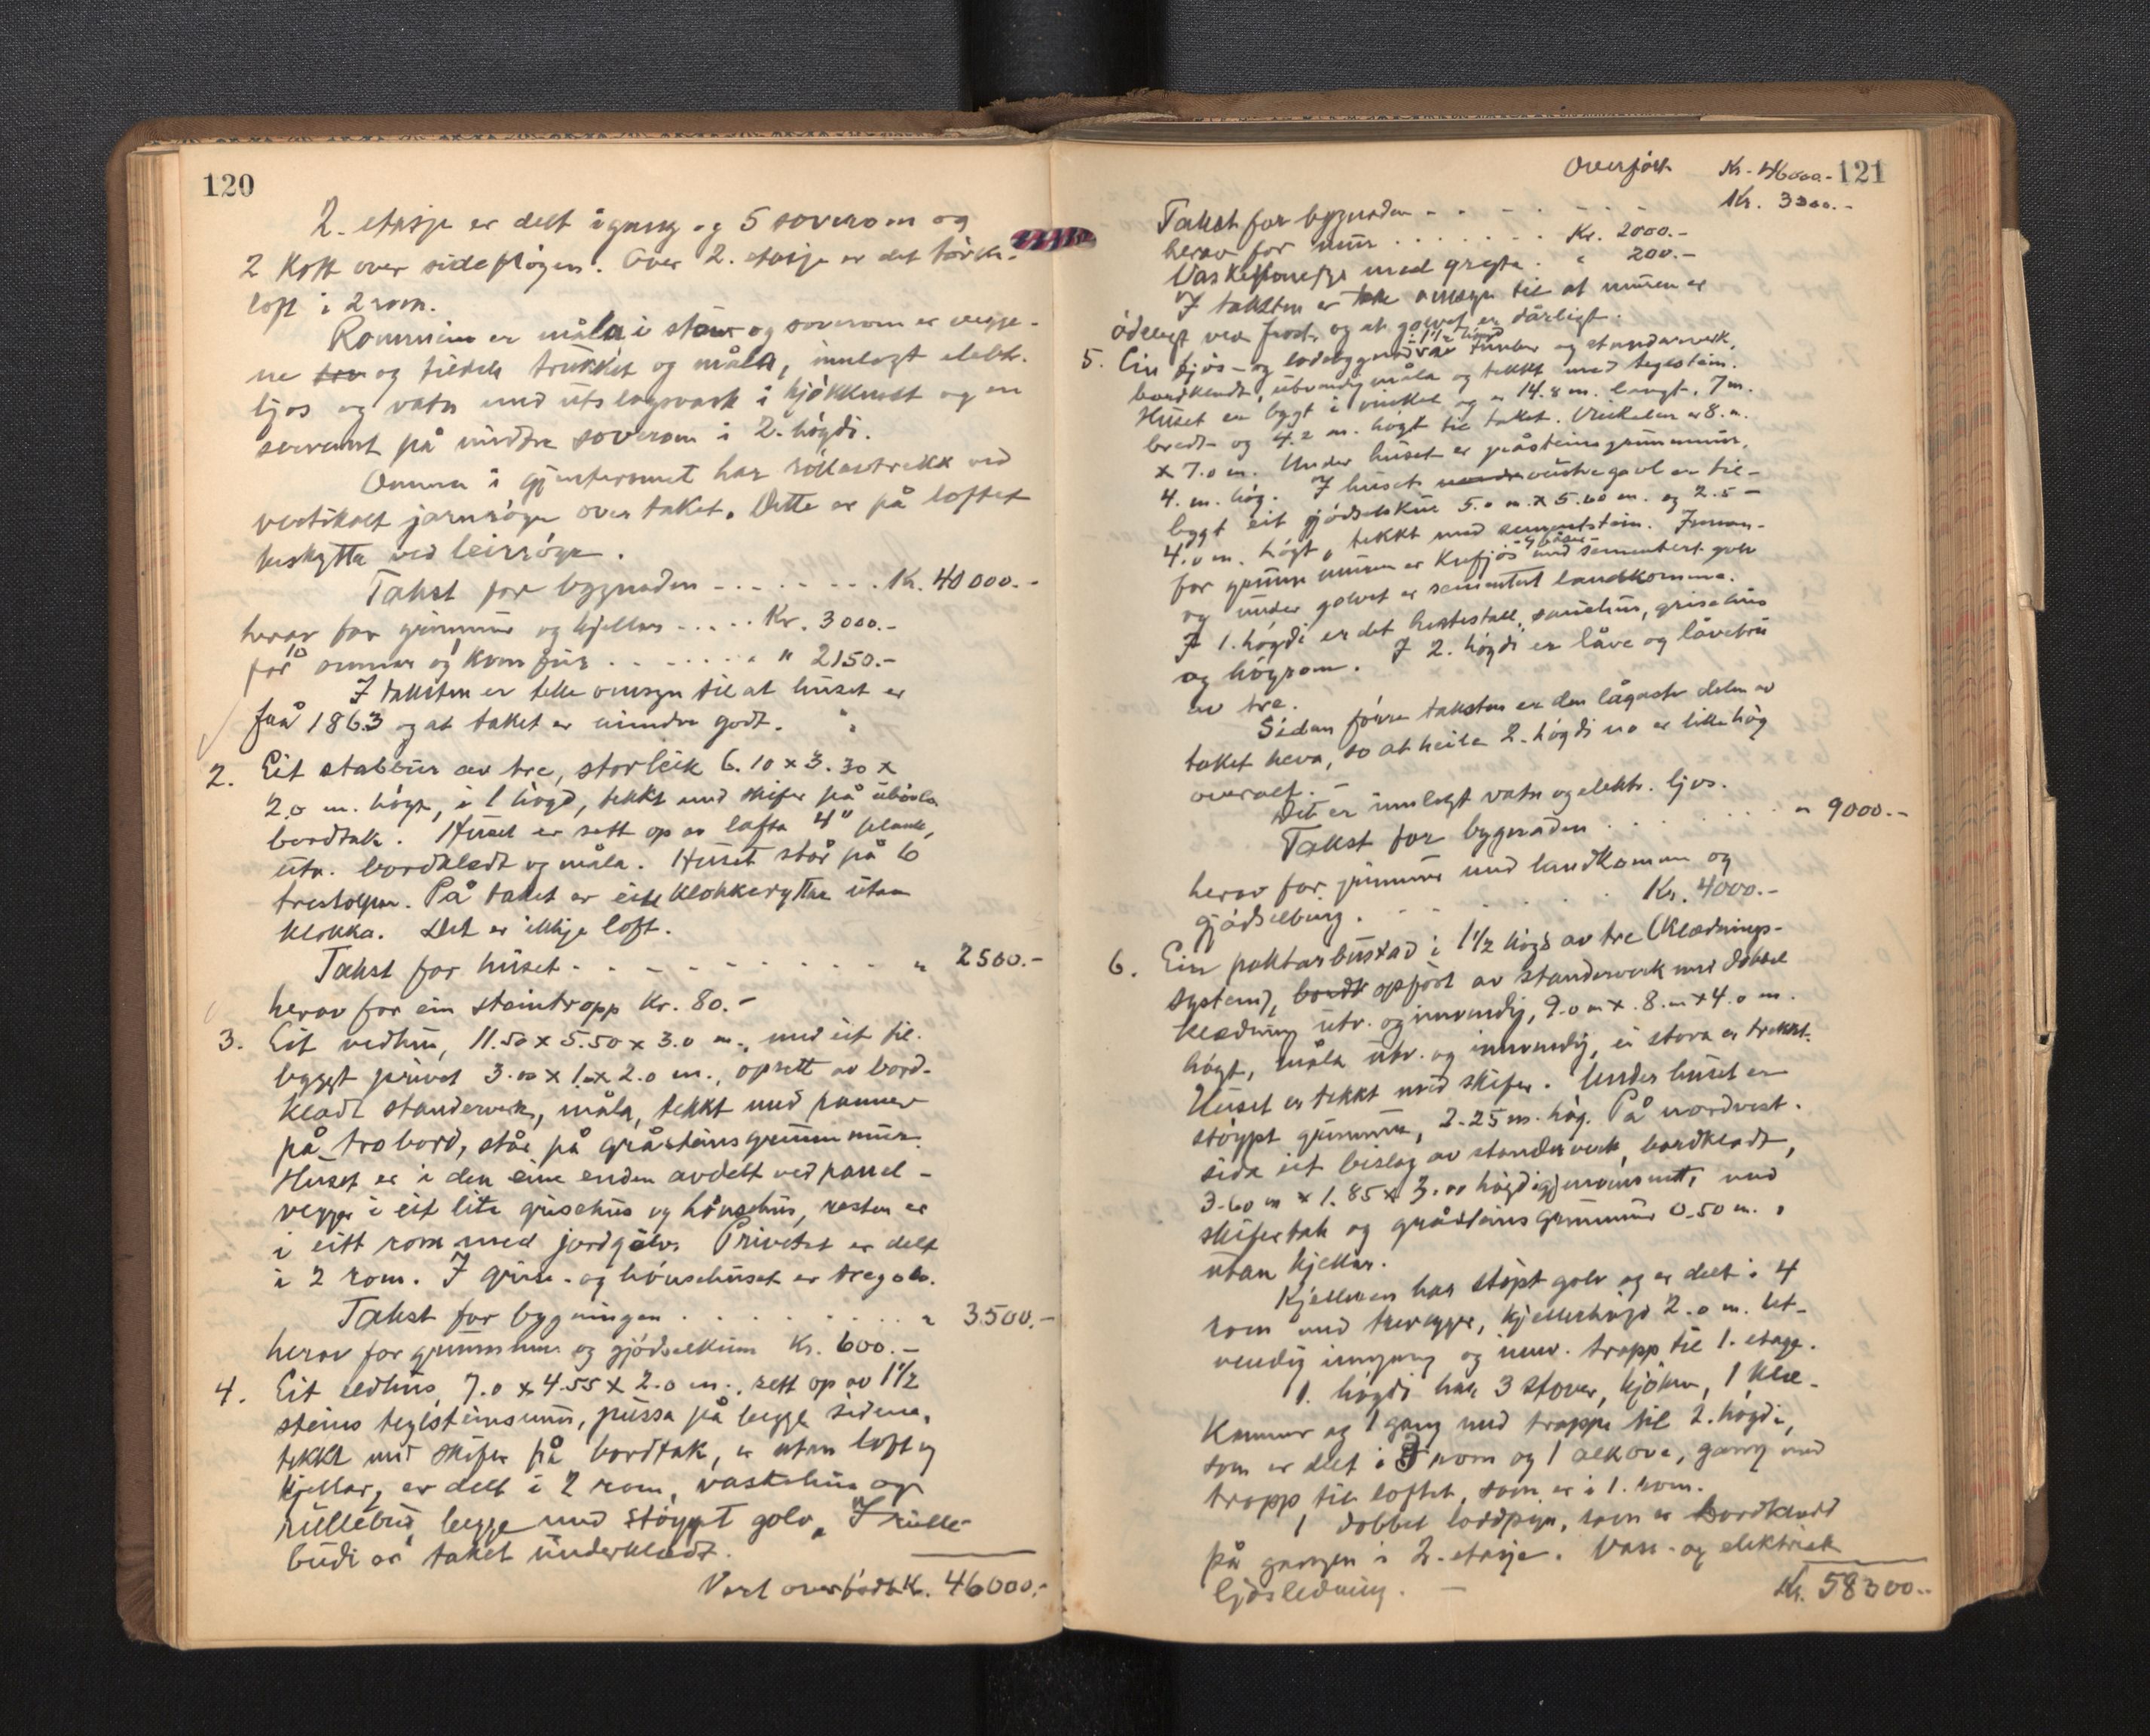 120
2. etasje er delt i gang og 5 soverom og
2 kott over sidefløgen. Over 2. etasje er det tørk-
loft i 2 rom.
Rommine er måla i stove og soverom er vegge-
ne og tildels trukket og måla, innlagt elektr.
ljos og vatn med utslagsvask i kjøkkenet og en
servant på midtre soverom i 2. høgdi.
Omnen i gjesterommet har röikavtrekk ved
vertikalt jarnröyr over taket. Dette er på loftet
beskytta ved leirröyr.
Takst for bygnaden - - - - - - - . Kr. 40 000.-
herav for grunnmur og kjellar - . . . . Kr. 3000.-
for 10 omnar og komfur . . - . . . . . " 2150.-
I taksten er teke omsyn til at huset er
frå 1863 og at taket er mindre godt.
2. Eit stabbur av tre, storleik 6.10 x 3.30 x
2.0 m. høgt, i 1 høgd, tekkt med skifer på uhövla
bordtak. Huset er sett op av lafta 4" plank,
utv. bordklædt og måla. Huset står på 6
trestolpar. På taket er eitt klokkerytter utan
klokka. Det er ikkje loft.
Takst for huset - . - - - - - - - - . " 2500.-
herav for ein steintropp Kr. 80.-
3. Eit vedhus, 11.50 x 5.50 x 3.0 m., med eit til-
bygt privet 3.00 x 1. x 2.0 m., opsett av bord-
klædt standerverk, måla, tekkt med panner
på trobord, står på gråsteins grunnmur.
Huset er i den eine enden avdelt ved panel-
vegger i eit lite grisehus og hönsehus, resten er
i eitt rom med jordgolv. Privetet er delt
i 2 rom. I grise- og hönsehuset er tregolv.
Takst for bygningen . . . . . . . . . " 3500.-
herav for grunnmur og gjödselkum Kr. 600.-
4. Eit eldhus, 7.0 x 4.55 x 2.0 m., sett op av 1½
steins teglsteinsmur, pussa på begge sidene,
tekkt med skifer på bordtak, er utan loft og
kjellar, er delt i 2 rom, vaskehus og
rullebud, begge med støypt golv. I rulle-
budi er taket underklædt.
Vert overført Kr. 46000.-
121
Overført Kr. 46000.-
Takst for bygnaden - - . - . - . - Kr. 3300.-
herav for mur . . . . . . . Kr. 2000.-
Vaskehus med gryte . " 200.-
I taksten er teke omsyn til at muren er
ödelagt ved frost og at golvet er dårligt.
5. Ein fjös- og lødebygnad i 1½ høgd av timber og standerverk,
bordklædt, utvendig måla og tekkt med teglstein.
Huset er bygt i vinkel og er 14.8 m. langt, 7 m.
bredt og 4.2 m. høgt til taket. Vinkelen er 8. m.
x 7.0 m. Under huset er gråsteins grunnmur,
4. m. høg. I huset vestre gavl er til-
bygt eit gjödselskur 5.0 m. x 5.60 m. og 2.5 -
4.0 m. høgt, tekkt med sementstein. Innan-
for grunnmuren er kufjös med sementert golv
og under golvet er sementert landkomme.
I 1. høgdi er det hestestall, sauehus, grisehus
og høyrom. I 2. høgdi er låve og låvebru
av tre.
Sidan førre taksten er den lågaste delen av
taket heva, so at heile 2. høgdi no er like høg
overalt. -
Det er innlagt vatn og elektr. ljos.
Takst for bygnaden . . . . . . . " 9000.-
herav for grunnmur med landkomme og
gjödselbing . . . . . . . Kr. 4000.-
6. Ein paktarbustad i 1½ høgd av tre (Klædnings-
system), opført av standerverk med dobbel
klædning utv. og innvendig, 9.0 m x 8. m x 4.0 m.
høgt, måla utv. og innvendig, ei stova er trekkt.
Huset er tekkt med skifer. Under huset er
støypt grunnmur, 2.25 m. høg. På nordvest-
sida eit bislag av standerverk, bordklædt,
3.60 m x 1.85 x 3.00 høgd i gjennomsnitt, med
skifertak og gråsteins grunnmur 0.50 m.,
utan kjellar.
Kjellaren har støpt golv og er delt i 4
rom med trevegger, kjellarhøgd 2.0 m. Ut-
vendig inngang og innv. tropp til 1. etage.
1. høgdi har 3 stover, kjøken, 1 klæ-
kammer og 1 gang med tropp til 2. høgdi,
som er delt i 3 rom og 1 alkove, gang med
tropp til loftet, som er i 1. rom.
1 dobbel lodpipe, som er bordklædt
på gangen i 2. etasje. Vass- og elektrisk
ljosledning. -
Kr. 58300.-